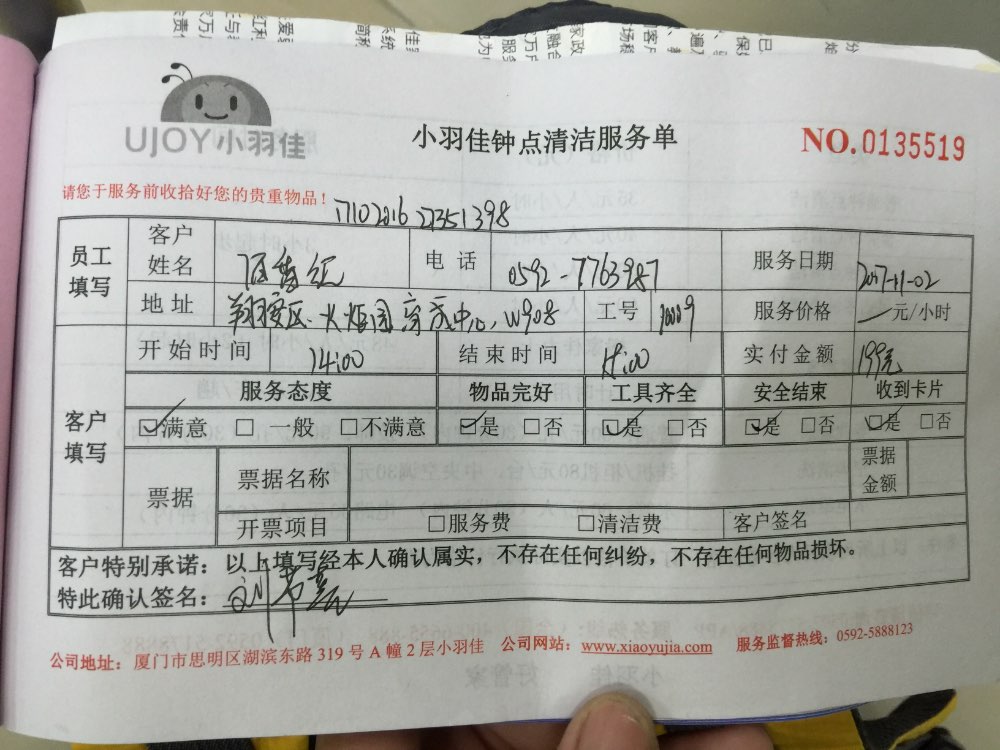 UJOY小羽佳
小羽佳钟点清洁服务单
NO.0135519
请您于服务前收拾好您的贵重物品！
1710201627351398
员工填写 客户姓名 电话 0592-7763987 服务日期 2017-11-02
地址 翔安区火炬园 中心W908 工号 10009 服务价格 元/小时
开始时间 14:00 结束时间 :00 实付金额 199元
客户填写 服务态度 物品完好 工具齐全 安全结束 收到卡片
☑满意 □一般 □不满意 ☑是 □否 ☑是 □否 ☑是 □否 ☑是 □否
票据 票据名称 票据金额
开票项目 □服务费 □清洁费 客户签名
客户特别承诺：以上填写经本人确认属实，不存在任何纠纷，不存在任何物品损坏。
特此确认签名：刘
公司地址：厦门市思明区湖滨东路319号A幢2层小羽佳 公司网站：www.xiaoyujia.com 服务监督热线：0592-5888123